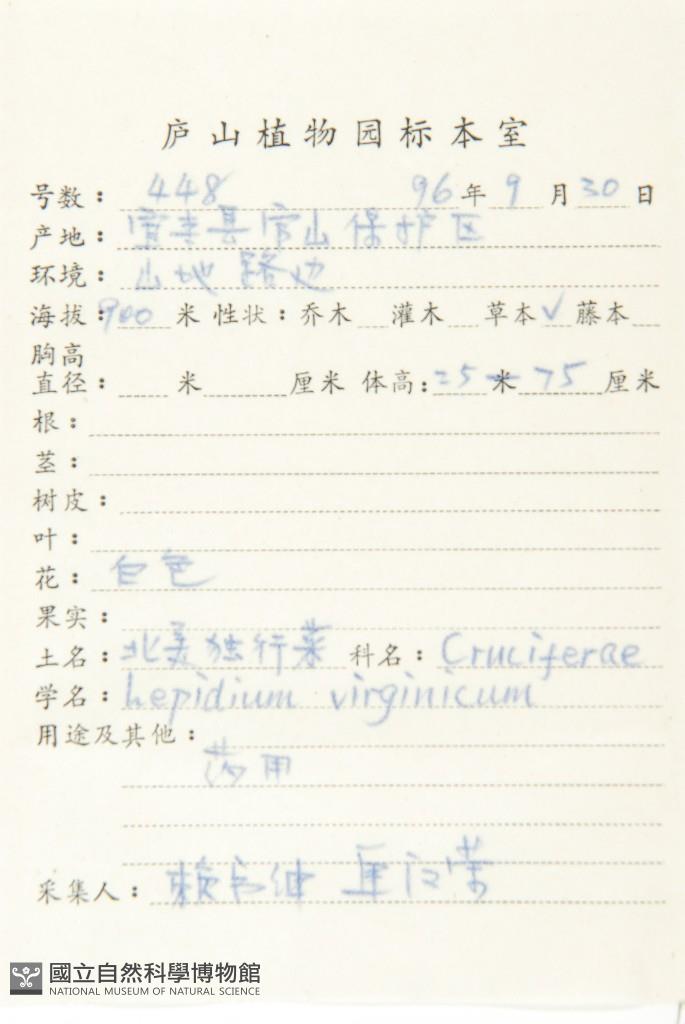 庐山植物园标本室
号数: 448 96年9月30日
产地: 宜丰县官山保护区
环境: 山地路边
海拔: 900 米 性状: 乔木 灌木 草本✓ 藤本
胸高
直径: 米 厘米 体高: 25米75厘米
根:
茎:
树皮:
叶:
花: 白色
果实:
土名: 北美独行菜 科名: Cruciferae
学名: Lepidium virginicum
用途及其他:
药用
采集人: 赖书绅
國立自然科學博物館
NATIONAL MUSEUM OF NATURAL SCIENCE